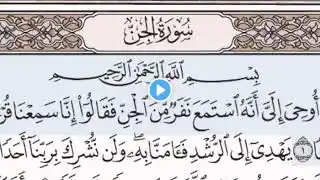 سُورَةُ الجِنِّ
بِسْمِ ٱللَّهِ ٱلرَّحْمَٰنِ ٱلرَّحِيمِ
أُوحِىَ إِلَىَّ أَنَّهُ ٱسْتَمَعَ نَفَرٌ مِّنَ ٱلْجِنِّ فَقَالُوٓا۟ إِنَّا سَمِعْنَا قُرْ
١ يَهْدِىٓ إِلَى ٱلرُّشْدِ فَـَٔامَنَّا بِهِۦ ۖ وَلَن نُّشْرِكَ بِرَبِّنَآ أَحَدًا